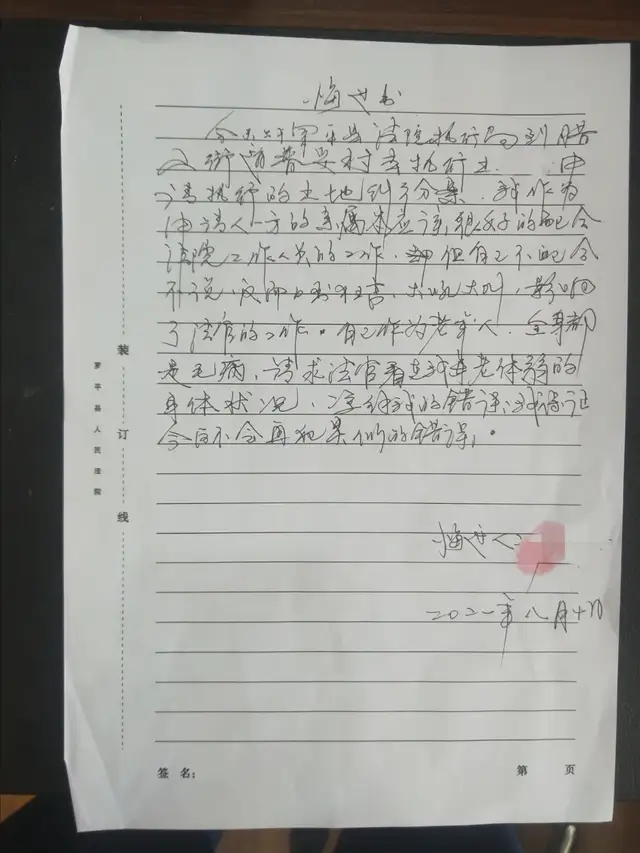 悔过书
今天上午罗平县法院执行局到腊
山街道普妥村去执行
申
请执行的土地纠纷案，我作为
申请人一方的亲属本应该很好的配合
法院工作人员的工作，但自己不配合
不说，反而口出狂言，大吼大叫，影响
了法官的工作。自己作为老年人，全身都
是毛病，请求法官看在我年老体弱的
身体状况，原谅我的错误，我保证
今后不会再犯类似的错误。
悔过人：
二〇二一年八月十日
装
订
线
罗平县人民法院
签 名：
第 页